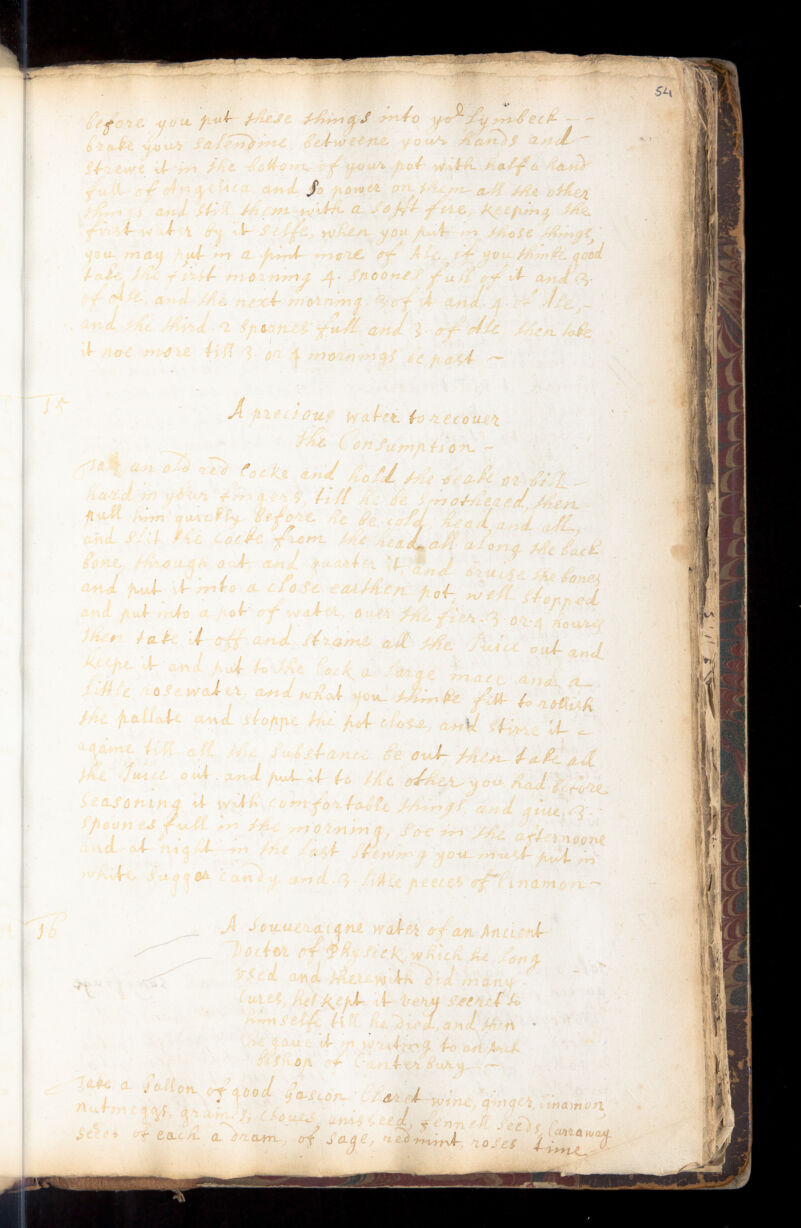 54
before you put these things into yor Lymbeck - -
brake your Salendine betweene your hands and -
Strewe it in the bottom of your pot with half a hand
full of Angelica and So power on them all the other
things and Still them with a Soft fire, keeping the
first water by it Selfe, when you put in those things,
you may put in a pint more of Ale, if you thinke good
take the first morning 4. Spoones full of it and 3.
of Ale, and the next morning 3 of it and 4 of Ale, -
and the third 2 Spoones full and 3. of Ale then take
it noe more till 3. or 4 mornings be past -
15
A precious water to recouer
the Consumption -
Take an old red Cocke and hold the beake or bill -
hard in your fingers, till he be smothered, then
pull him quickly before he be cold, head and all,
and Slit the Cocke from the head all along the back
bone through out, and quarter it and bruise the bones
and put it into a close earthen pot, well stopped
and put into a pot of water, ouer the fier 3 or 4 houres
then take it off and straine all the Juice out and
keepe it and put to the Cock a large mace and a -
little rosewater, and what you thinke fitt to rellish
the pallate and stoppe the pot close, and stirre it -
againe till all the Substance be out then take all
the Juice out and put it to the other you had before
Seasoning it with comfortable things, and giue 3
Spoones full in the morning, soe in the afternoone
and at night in the last Stewing you must put in
white Sugger Candy and 3 little peeces of Cinamon -
16
A Souueraigne water of an Ancient
Docter of Physick, which he long
vsed and therewith did many
Cures, hee kept it very secret to
himselfe till he died, and then
he gaue it in writing to an Arch
Bishop of Canterbury -
Take a Gallon of good Gascon Claret wine, ginger, cinamon,
nutmeggs, grains, Cloues, anisseed, fennell seeds, Carraway
Seeds of each a dram, of Sage, red mint, roses time